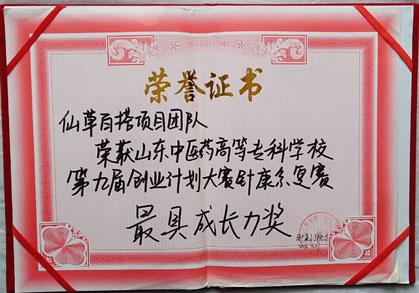 荣誉证书
仙草百搭项目团队
荣获山东中医药高等专科学校
第九届创业计划大赛暨康复赛
最具成长力奖